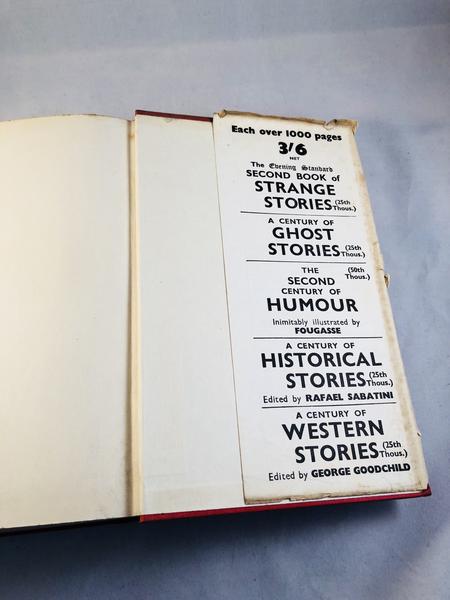 Each over 1000 pages
3/6
NET
The Evening Standard
SECOND BOOK of
STRANGE
STORIES (25th Thous.)
A CENTURY OF
GHOST
STORIES (25th Thous.)
THE (50th Thous.)
SECOND
CENTURY OF
HUMOUR
Inimitably illustrated by
FOUGASSE
A CENTURY OF
HISTORICAL
STORIES (25th Thous.)
Edited by RAFAEL SABATINI
A CENTURY OF
WESTERN
STORIES (25th Thous.)
Edited by GEORGE GOODCHILD